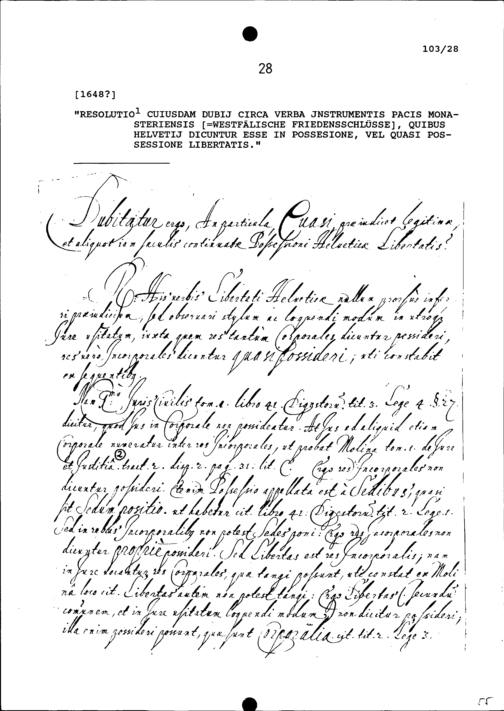 103/28
28
[1648?]
"RESOLUTIO¹ CUIUSDAM DUBIJ CIRCA VERBA JNSTRUMENTIS PACIS MONA-
STERIENSIS [=WESTFÄLISCHE FRIEDENSSCHLÜSSE], QUIBUS
HELVETIJ DICUNTUR ESSE IN POSSESIONE, VEL QUASI POS-
SESSIONE LIBERTATIS."
Dubitatur ergo, An particula, Quasi, praeiudicet legitimae,
et aliquot iam saeculis continuatae Possessioni Helveticae Libertatis?
R. His verbis Libertati Helveticae nullum prorsus infer-
ri praeiudicium, sed observari stylum ac loquendi modum in utroque
Jure usitatum, iuxta quem res tantum Corporales dicuntur possideri,
res vero Incorporales dicuntur quasi possideri; uti constabit
ex sequentibus.
Nam Juris Civilis tom. 1. libro 41. Digestorum, tit. 2. Lege 4. § 27.
dicitur, quod Jus in Corporale non possideatur. At Jus ad aliquid etiam
Corporale numeratur inter res Incorporales, ut probat Molina tom. 1. de Jure
et Justitia 2 tract. 2. disp. 2. pag. 31. lit. C. Ergo res Incorporales non
dicuntur possideri. Etenim Possessio appellata est à Sedibus, quasi
sit Sedium positio. ut habetur cit. libro 41. Digestorum, tit. 2. Lege 1.
Sed in rebus Incorporalibus non potest Sedes poni: Ergo res Incorporales non
dicuntur proprie possideri. Sed Libertas est res Incorporalis; nam
in Jure vocantur res Corporales, quae tangi possunt, ut constat ex Moli-
na loco cit. Libertas autem non potest tangi: Ergo Libertas (secundum
communem, et in Jure usitatum loquendi modum) non dicitur possideri;
illa enim possideri possunt, quae sunt Corporalia cit. tit. 2. Lege 3.
55